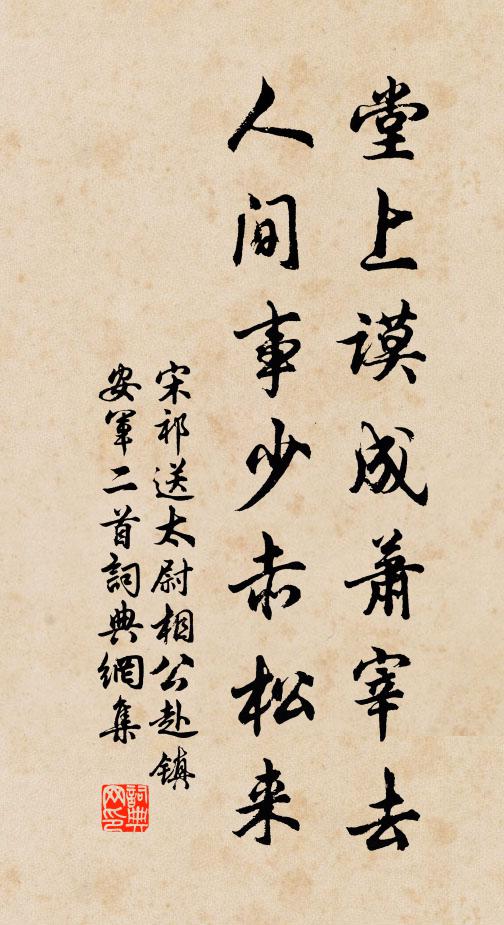 堂上谟成萧宰去
人间事少赤松来
宋祁送太尉相公赴镇
安军二首詞典網集
詞典网印